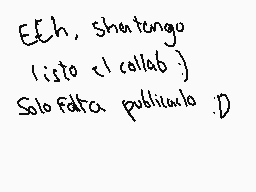 EEh, sha tengo
listo el collab :)
Solo falta publicarlo :D